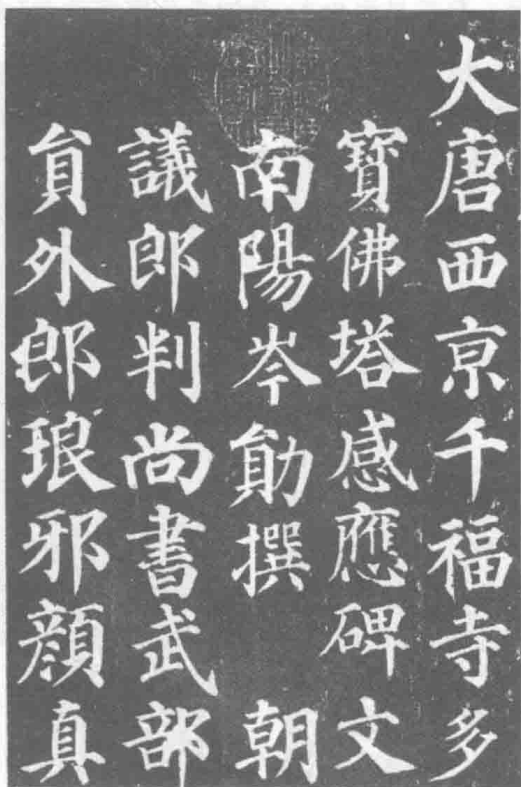 大唐西京千福寺多
寶佛塔感應碑文
南陽岑勛撰 朝
議郎判尚書武部
貟外郎琅邪顏真